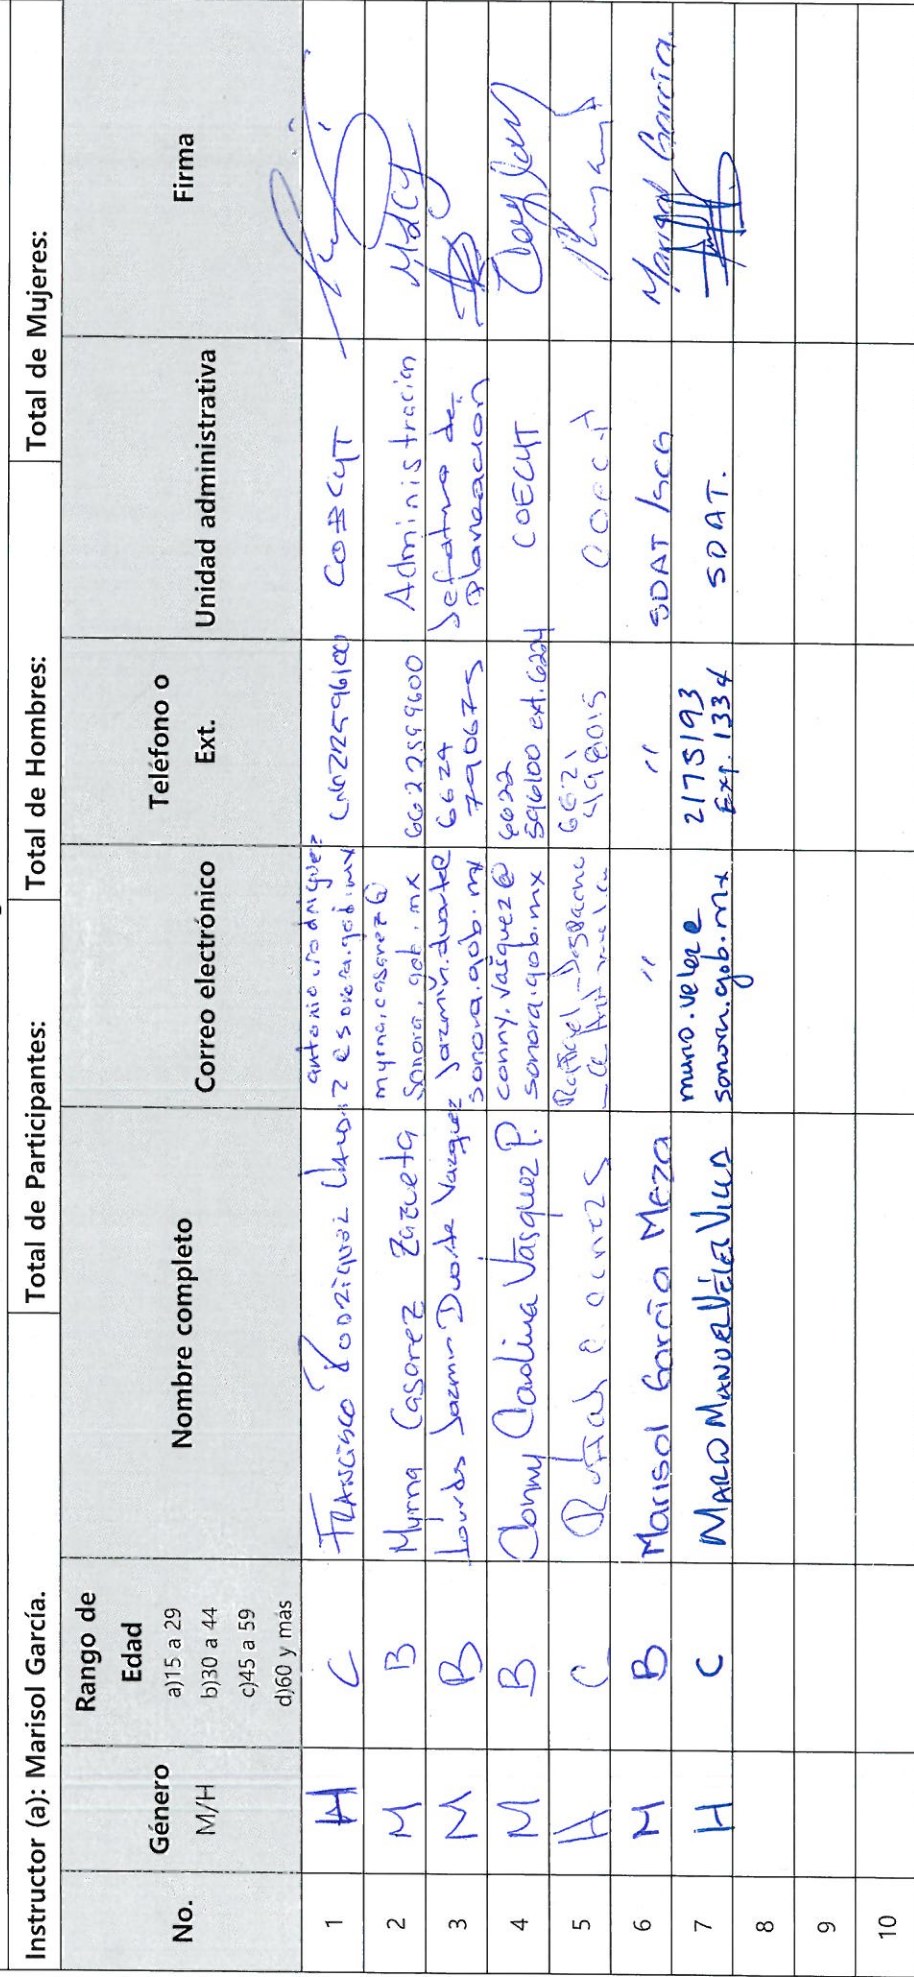 Instructor (a): Marisol García. Total de Participantes: Total de Hombres: Total de Mujeres:
No. Género M/H Rango de Edad a)15 a 29 b)30 a 44 c)45 a 59 d)60 y más Nombre completo Correo electrónico Teléfono o Ext. Unidad administrativa Firma
1 H C Francisco Rodríguez antonio.rodriguez
2 M B Myrna Casarez Zazueta myrna.casarez@ sonora.gob.mx 6622599600 Administracion Mdcy
3 M B Lourdes Jazmin Duarte Vazquez Jazmin.duarte sonora.gob.mx 6624 790675 Jefatura de planeacion
4 M B Conny Carolina Vásquez P. conny.vasquez@ sonora.gob.mx 6622 596100 ext.6224 COECYT
5 H C 6621
6 M B Marisol García Meza " " SDAT /SCG Marisol García.
7 H C Mario Manuel Vélez sonora.gob.mx 2175193 Ext. 1334 SDAT.
8
9
10